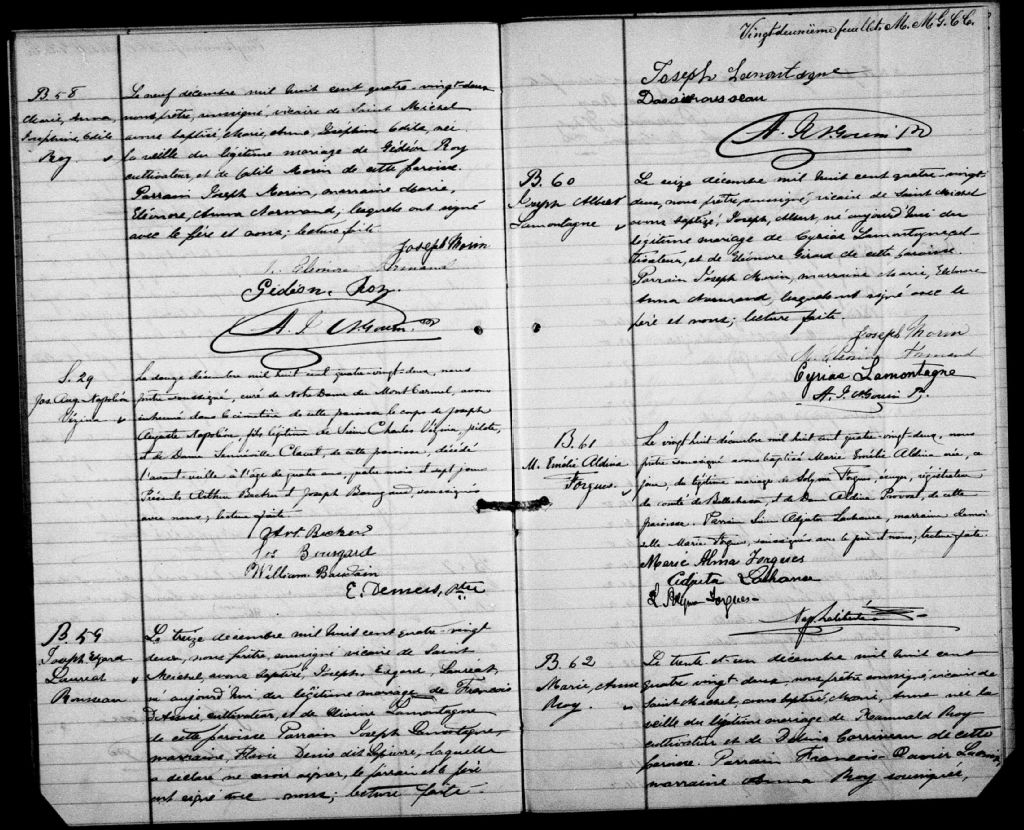 B 58
Marie, Anna,
Joséphine Edite
Roy
Le neuf décembre mil huit cent quatre-vingt-deux
nous prêtre, soussigné, vicaire de Saint Michel
avons baptisé Marie, Anna, Joséphine Edite, née
la veille du légitime mariage de Gédéon Roy
cultivateur, et de Morin de cette paroisse.
Parrain Joseph Morin, marraine Marie,
Eléonore, Anna Normand, lesquels ont signé
avec le père et nous; lecture faite
Joseph Morin
Eléonore
Gédéon Roy.
S. 29
Jos. Aug. Napoléon
Vézina
Le douze décembre mil huit cent quatre-vingt-deux, nous
prêtre soussigné, curé de Notre Dame du Mont Carmel, avons
inhumé dans le cimetière de cette paroisse le corps de Joseph
Auguste Napoléon, fils légitime de Sieur Charles Vézina, pilote,
et de Dame de cette paroisse, décédé
l'avant-veille à l'âge de quatre ans, mois et sept jours
Arthur et Joseph soussignés
avec nous; lecture faite
Art. Becker
Jos
William
E. Demers, Ptre
B. 59
Joseph Ezard
Lauréat
Rousseau
Le treize décembre mil huit cent quatre-vingt
deux, nous prêtre, soussigné vicaire de Saint
Michel, avons baptisé, Joseph, Ezard, Lauréat,
né aujourd'hui du légitime mariage de François
cultivateur, et de Lamontagne
de cette paroisse Parrain Joseph Lamontagne,
marraine, Flavie Denis dit Lapierre, laquelle
a déclaré ne savoir signer, le parrain et le père
ont signé avec nous; lecture faite.
Vingt-deuxième feuillet M. M. G. C. C.
Joseph Lamontagne
B. 60
Joseph Albert
Lamontagne
Le seize décembre mil huit cent quatre-vingt
deux, nous prêtre, soussigné, vicaire de Saint Michel
avons baptisé, Joseph, Albert, né aujourd'hui du
légitime mariage de Cyrias Lamontagne, cul
tivateur, et de Eléonore Girard de cette paroisse.
Parrain Joseph Morin, marraine Marie, Eléonore
Anna Normand, lesquels ont signé avec le
père et nous; lecture faite.
Joseph Morin
Cyrias Lamontagne
B. 61
M. Emélie Aldina
Forgues.
Le vingt huit décembre mil huit cent quatre-vingt-deux, nous
prêtre soussigné avons baptisé Marie Emélie Aldina née, ce
jour, du légitime mariage de Forgues, régistrateur
du comté de Bellechasse, et de Dame Aldina de cette
paroisse. Parrain Sieur Adjutor Lachance, marraine demoi
selle Marie Forgues, soussignés avec le père et nous; lecture faite.
Marie Alma Forgues
Adjutor Lachance
Forgues
B. 62
Marie, Anne
Roy.
Le trente et un décembre mil huit cent
quatre vingt deux, nous prêtre soussigné, vicaire de
Saint Michel, avons baptisé, Marie, Anne née la
veille du légitime mariage de Roy
cultivateur et de Corriveau de cette
paroisse. Parrain François Xavier
marraine Anna Roy soussignée,